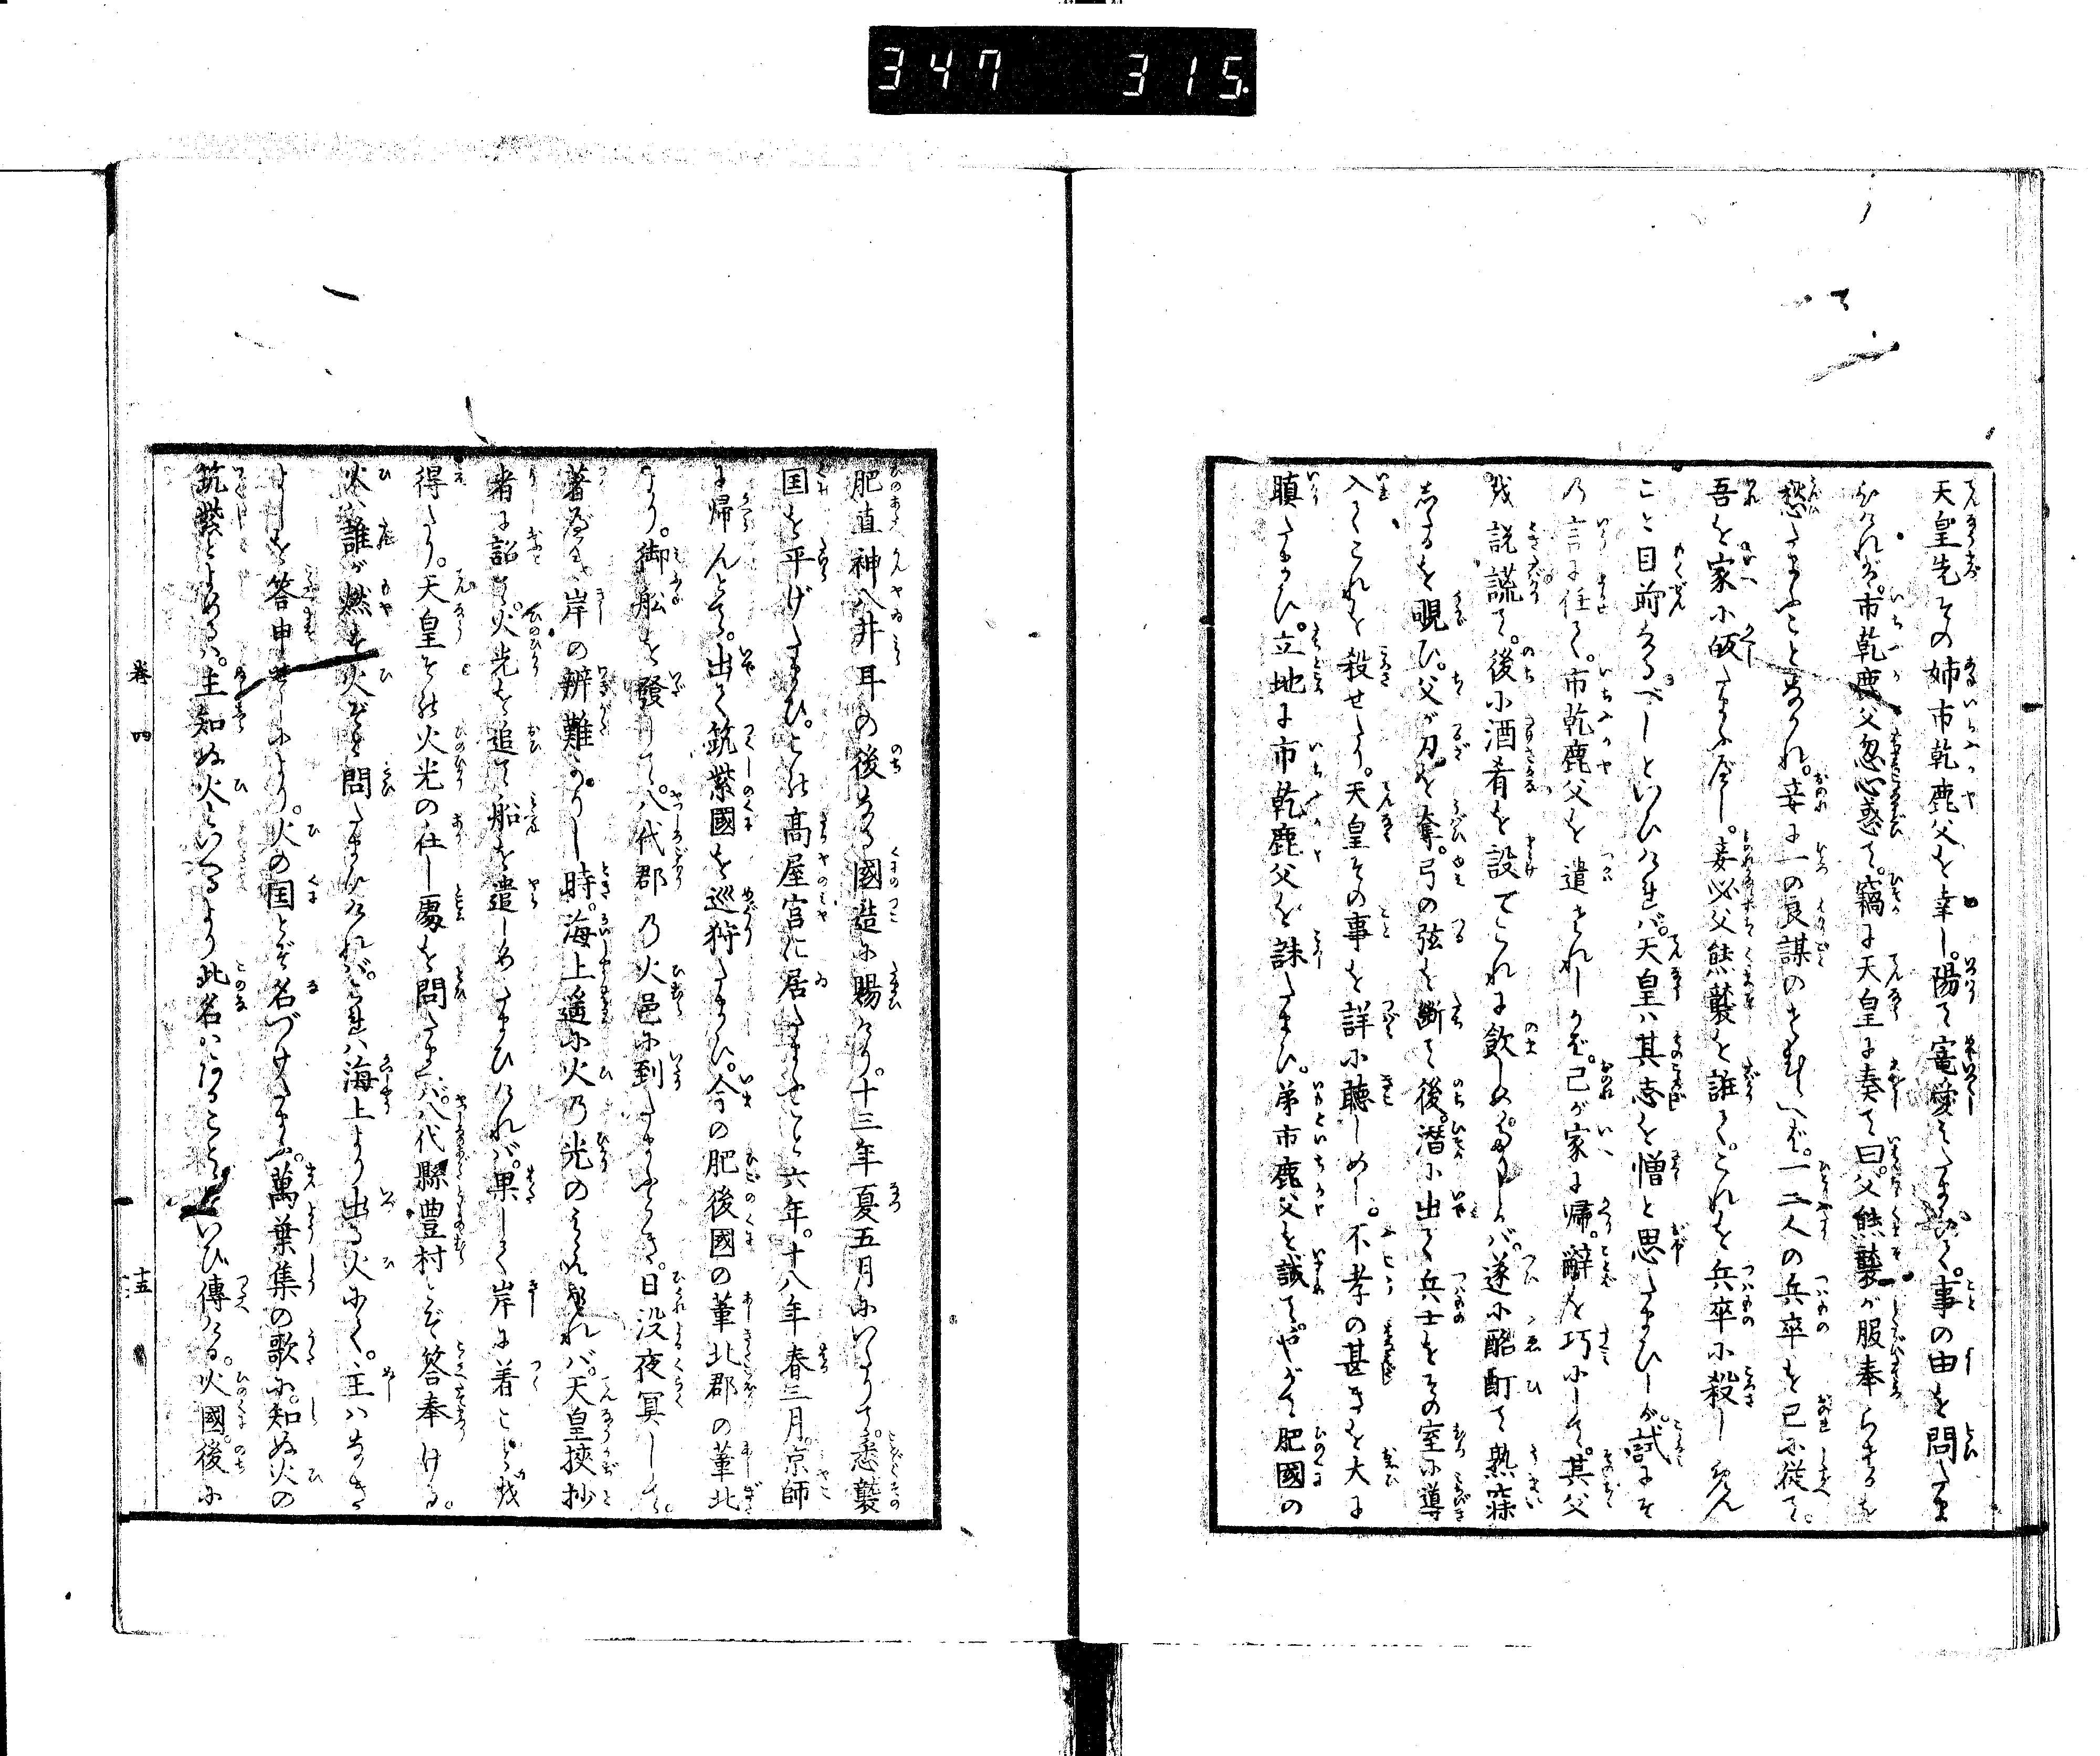 347 315
天皇先その姉市乾鹿父を幸し。陽て寵愛したまひて。事の由を問たま
ひければ。市乾鹿父忽心惑て。竊に天皇に奏て曰。父熊襲が服奉らざるを
愁たまふことなかれ。妾に一の良謀のさむらへば。一二人の兵卒を己に従て。
吾を家に皈したまふべし。妾必父熊襲を誰て。これを兵卒に殺しめん
こと目前なるべしといひければ。天皇ハ其志を憎と思たまひしが。試にそ
の言に任て。市乾鹿父を遣されしかば。己が家に帰。辭を巧にして。其父
を説謊て。後に酒肴を設てこれに飲しめ
ば。遂に酩酊て熟寐
したるを覗ひ。父が刀を奪。弓の弦を断て後。潜に出て兵士をその室に導
入てこれを殺せたり。天皇その事を詳に聴しめし。不孝の甚きを大に
瞋たまひ。立地に市乾鹿父を誅たまひ。弟市鹿父を誡て。やがて肥國の
肥直神八井耳の後なる國造に賜けり。十三年夏五月にいたりて。悉襲
国を平げたまひ。これ高屋宮に居たまふこと六年。十八年春三月。京師
に帰んとて。出て筑紫國を巡狩たまひ。今の肥後國の葦北郡の葦北
より。御船を發して。八代郡の火邑に到たまふとき。日没夜冥して。
著べき岸の辨難かりし時。海上遥に火の光のみえければ。天皇挾抄
者に詔て。火光を追て船を遣しめたまひければ。果して岸に着ことを
得たり。天皇それ火光の在し處を問たまへバ。八代縣豊村とぞ答奉ける。
火ハ誰が燃す火ぞと問たまひければ。これハ海上より出る火にて。主ハなき
よしを答申せしにより。火の国とぞ名づけたまふ。萬葉集の歌に。知ぬ火の
筑紫とよめるハ。主知ぬ火といへるより此名ハおこることといひ傳ける。火國。後に
巻四 十五